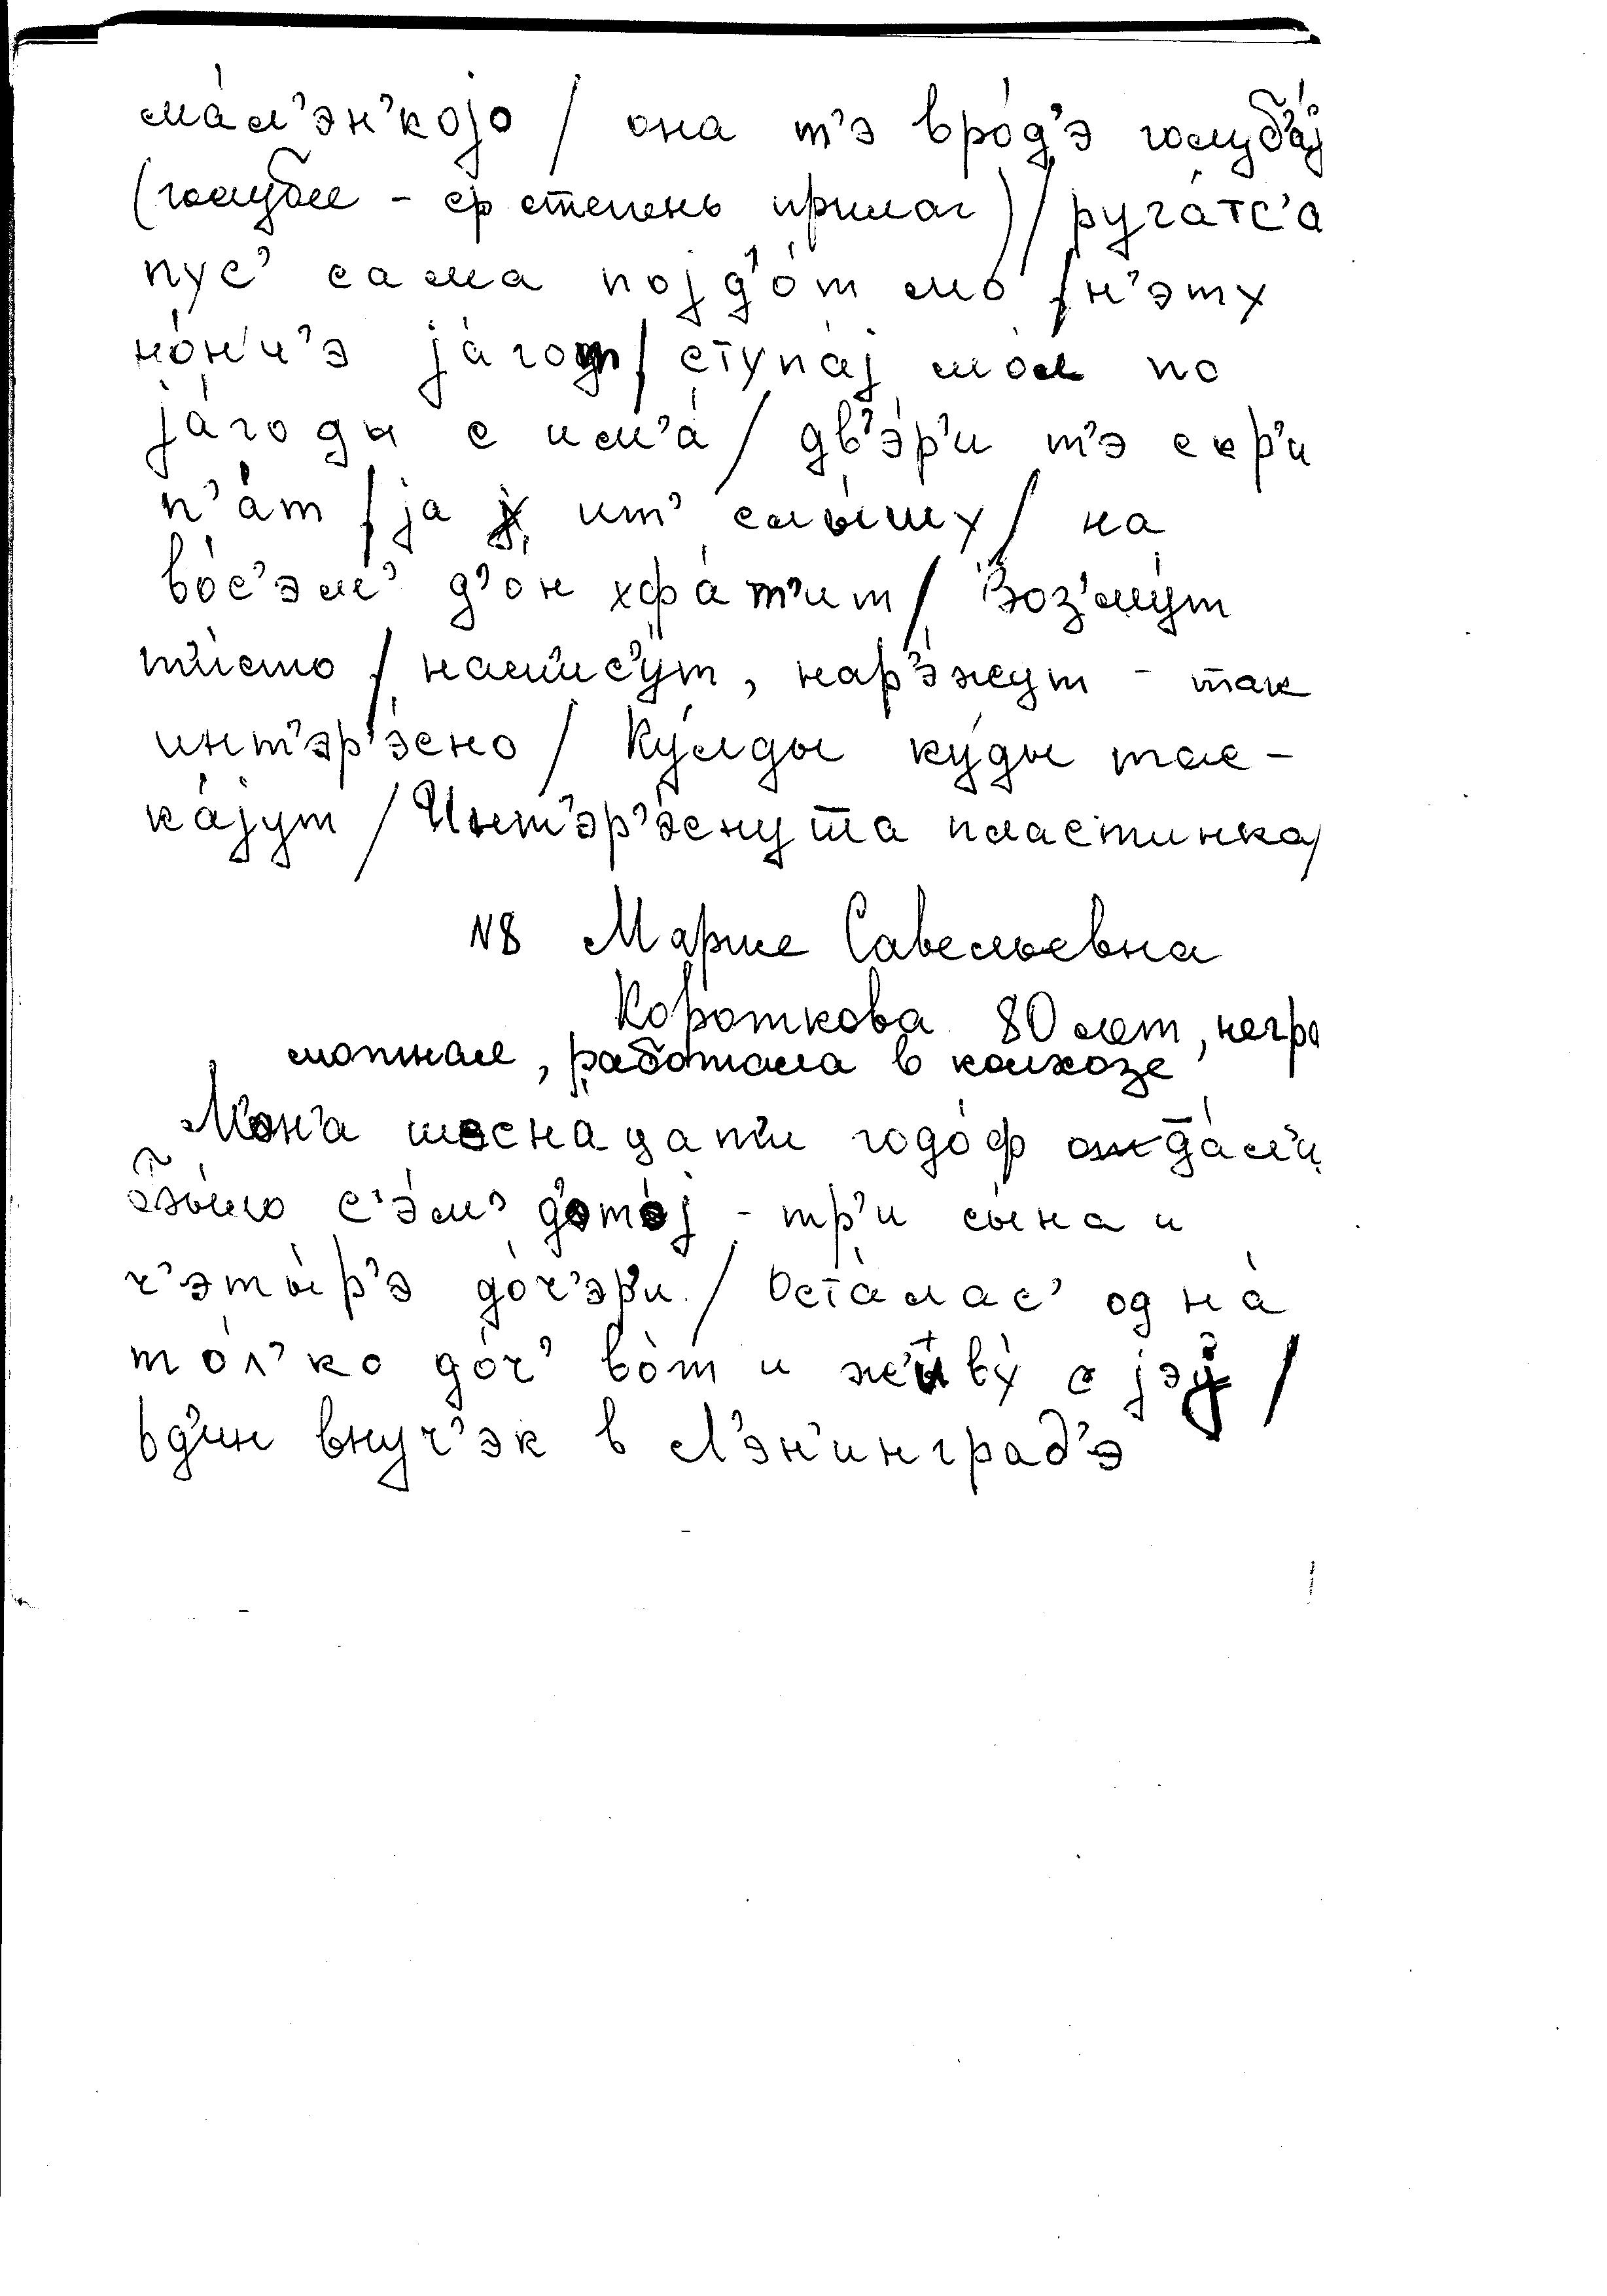 ма́л’эн’којо / она т’э вро́д’э голуб’а́j
(голубее - ср степень прилаг) / руга́тс’а
пус’ сама поjд’о́т мо / н’эту
но́н’ч’э jа́гот / ступа́j мол по
jа́годы с им’а́ / дв’э́р’и т’э скр’и
п’а́т / jа ит’ слы́шу / на
во́с’эм’ д’он хфа́т’ит / Воз’му́т
п’исмо / нап’ис’ут, нар’э́жут - так
инт’эр’э́сно / Ку́лды ку́ды тас-
ка́jут / Инт’эр’э́сну та пластинка /
N8 Марие Савельевна
Короткова 80 лет, негра
мотная, работала в колхозе
М’он’а шеснацат’и годо́ф одда́л’и
бы́ло с’э́м’ д’от’э́j - тр’и сы́на и
ч’эты́р’э до́ч’эр’и / Оста́лас’ одна́
то́л’ко до́ч’ во́т и живу́ с jэj /
од’ин внуч’эк в Л’эн’инград’э